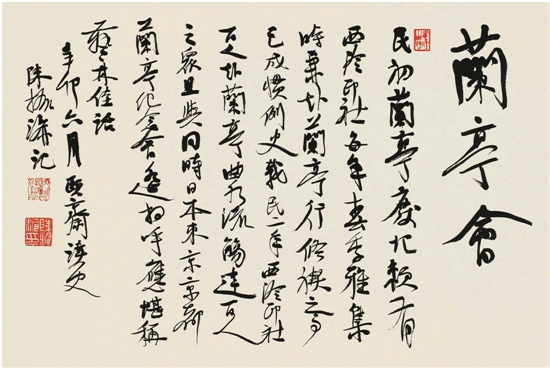 蘭亭會
民初蘭亭廢圮賴有
西泠印社每年春季雅集
時兼於蘭亭行修禊之事
已成慣例史載民二年西泠印社
百人於蘭亭曲水流觴達百人
之衆且與同時日本東京京都
蘭亭紀念會遙相呼應堪稱
藝林佳話
辛卯六月頤齋讀史
陳振濂記